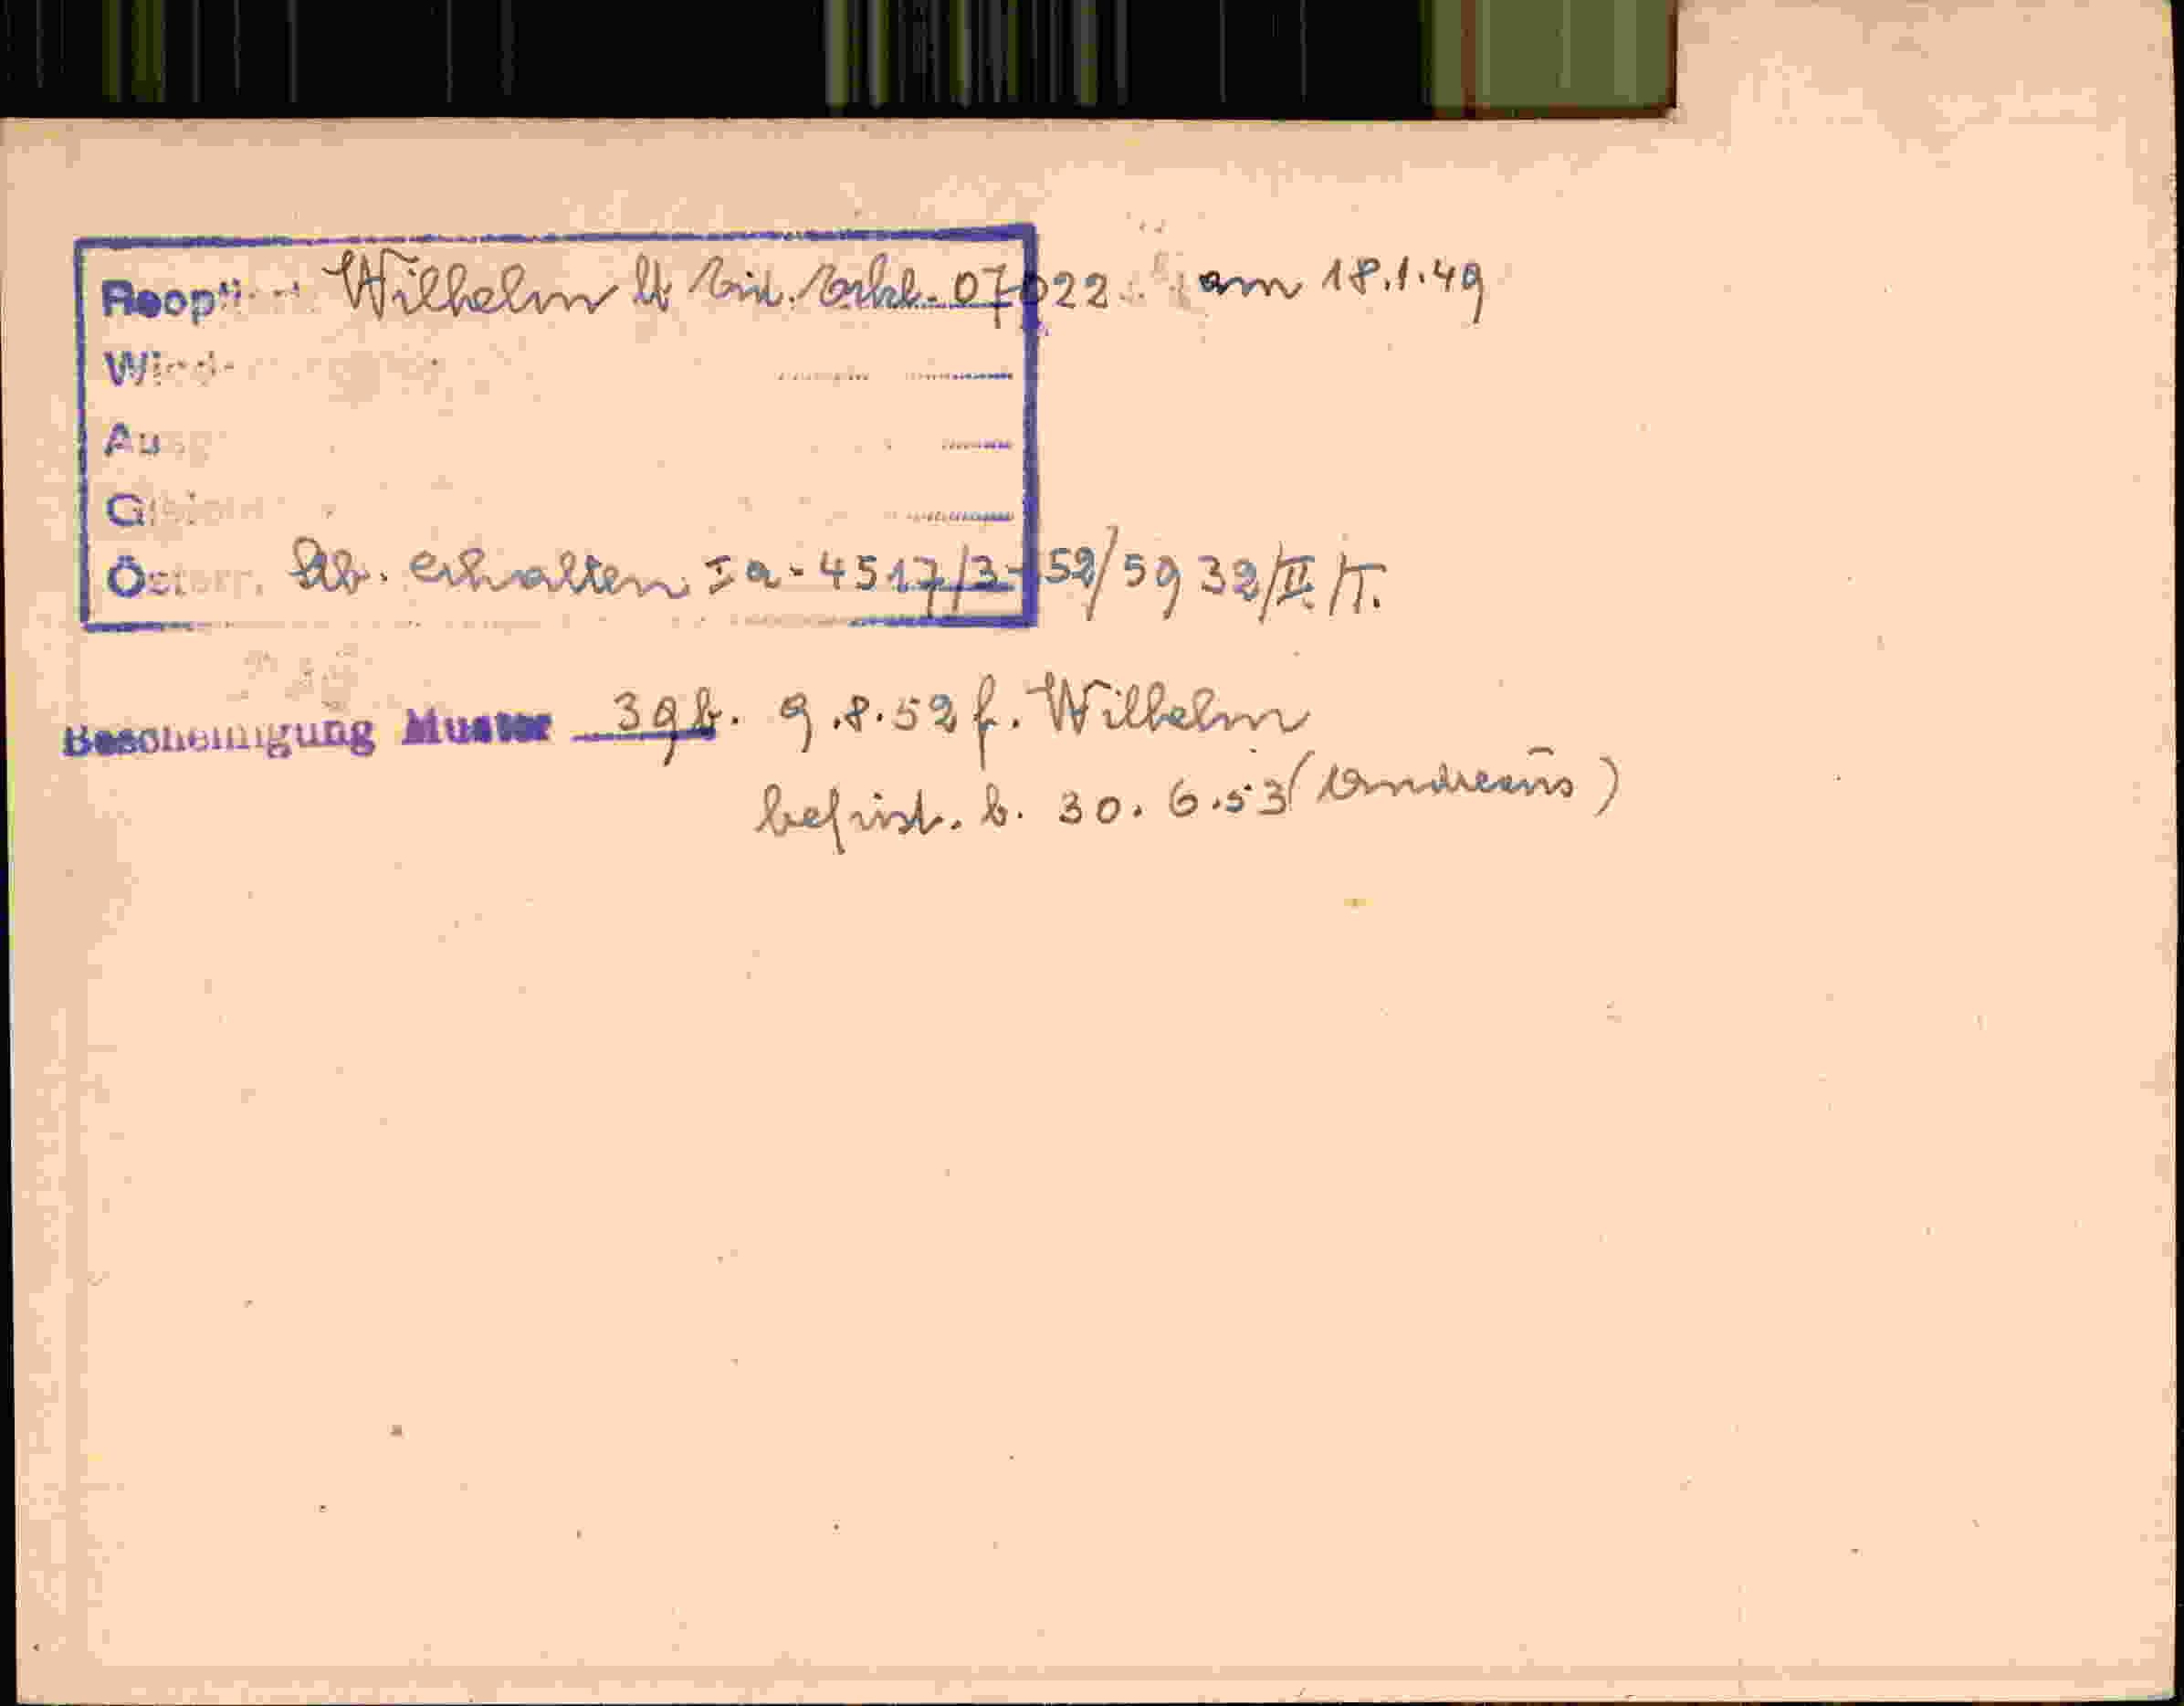 Reoptiert Wilhelm lt Eid. Erkl. 07022 am 18.1.49
Wied
Aus
G
Österr. Stb. erhalten Ia-4517/3-52/5932/II/T.
Bescheinigung Muster 39b. 9.8.52 f. Wilhelm
befrist. b. 30.6.53 (Andreaus)